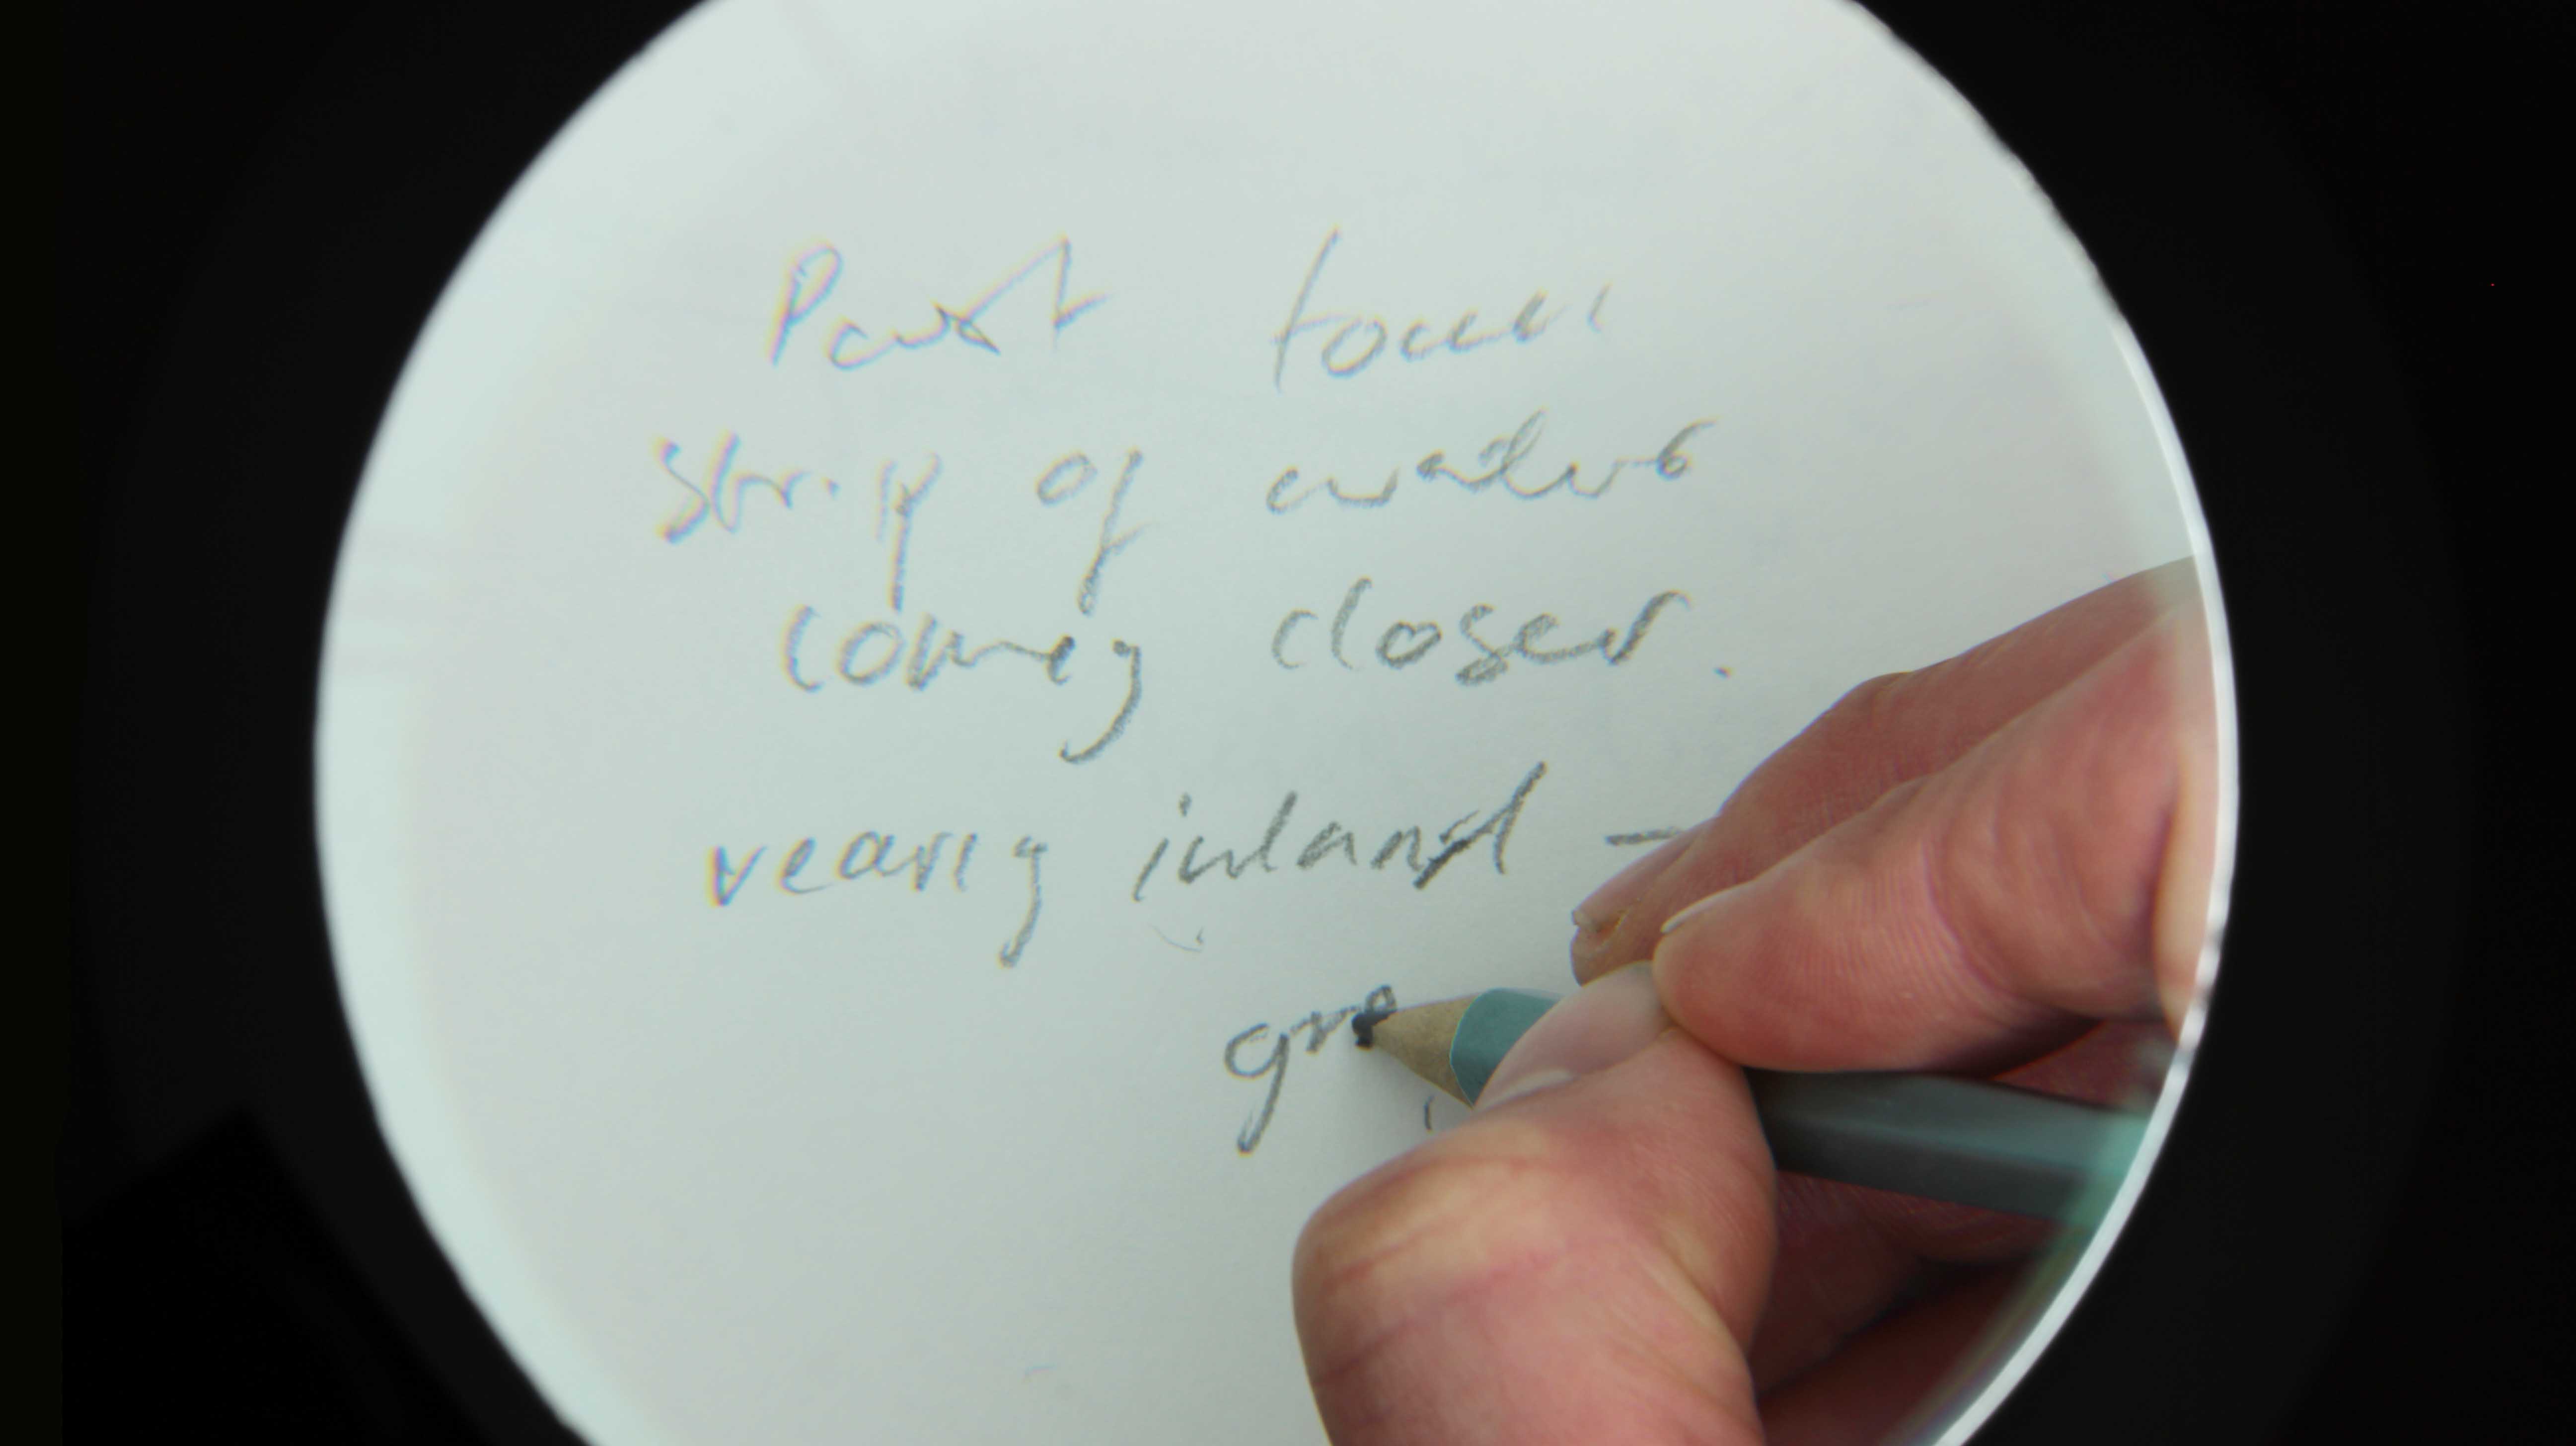 Past town
strip of water
coming closer.
nearing inland -
gre